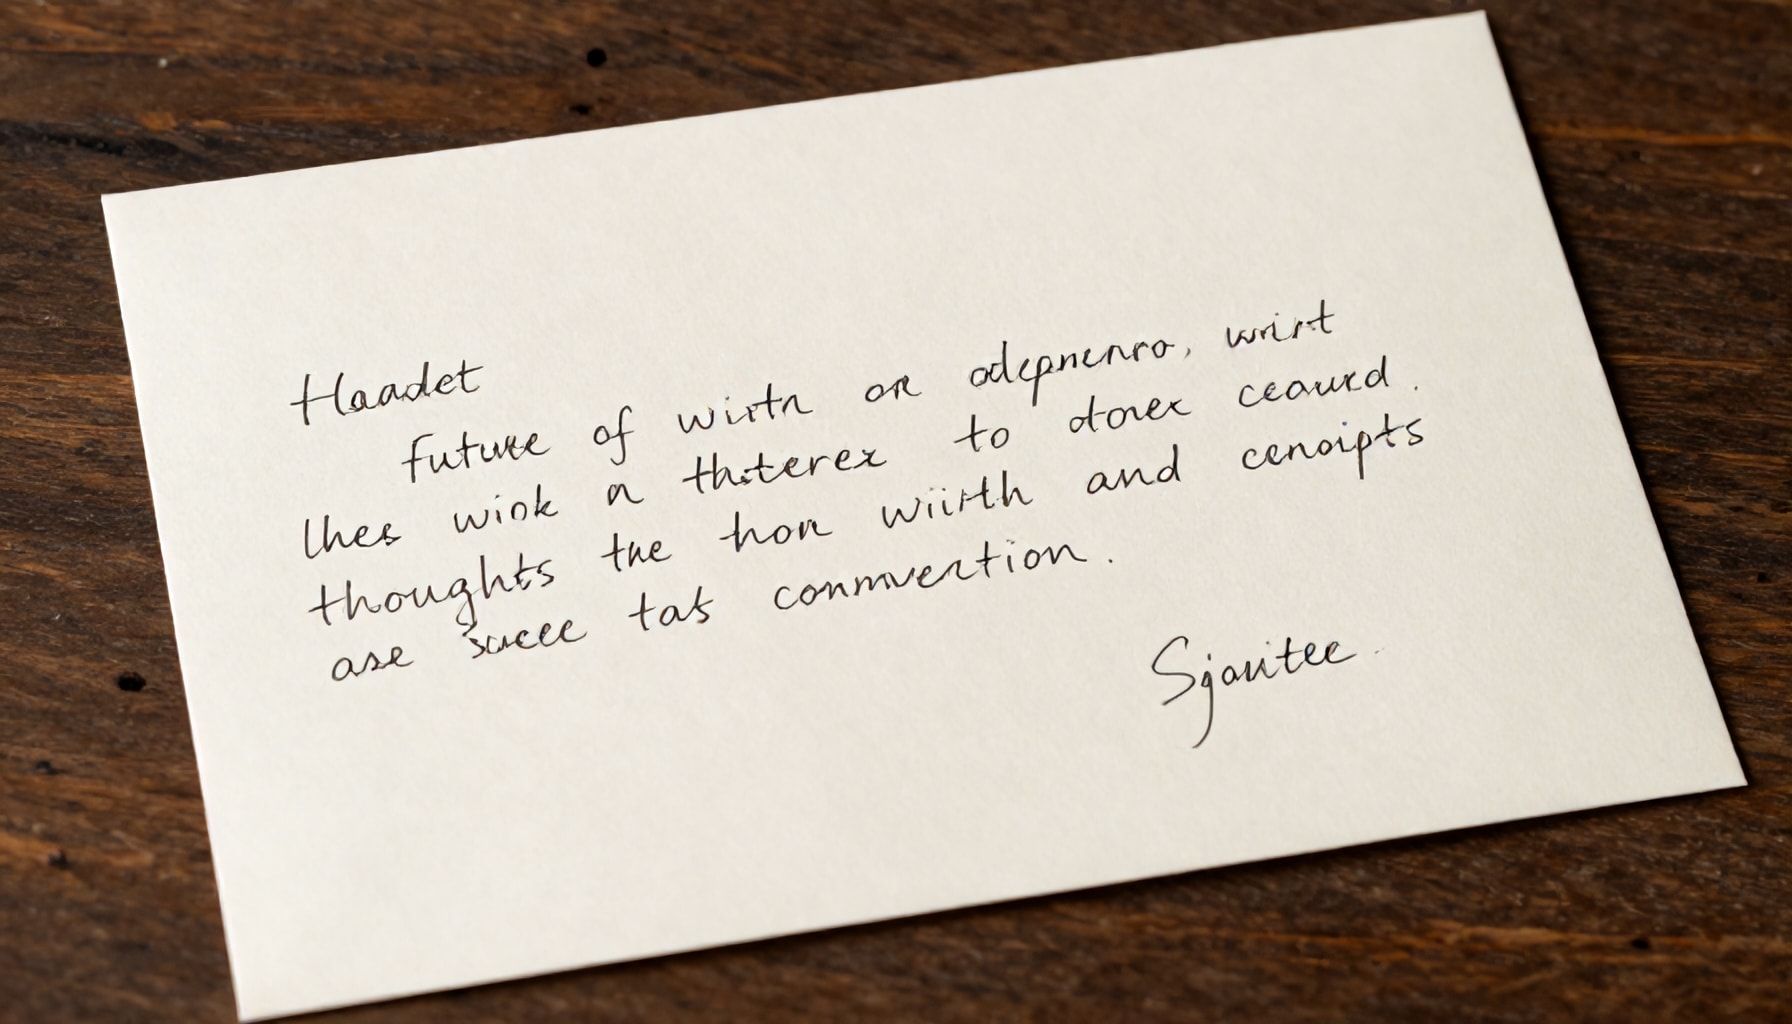 Haadet
future of wirtn or odepnenro, wrirt
lhes wiok a thaterex to dorex ceaurd.
thoughts the hor wiirth and cenoipts
are sucee tas conmvertion.
Sjauitee